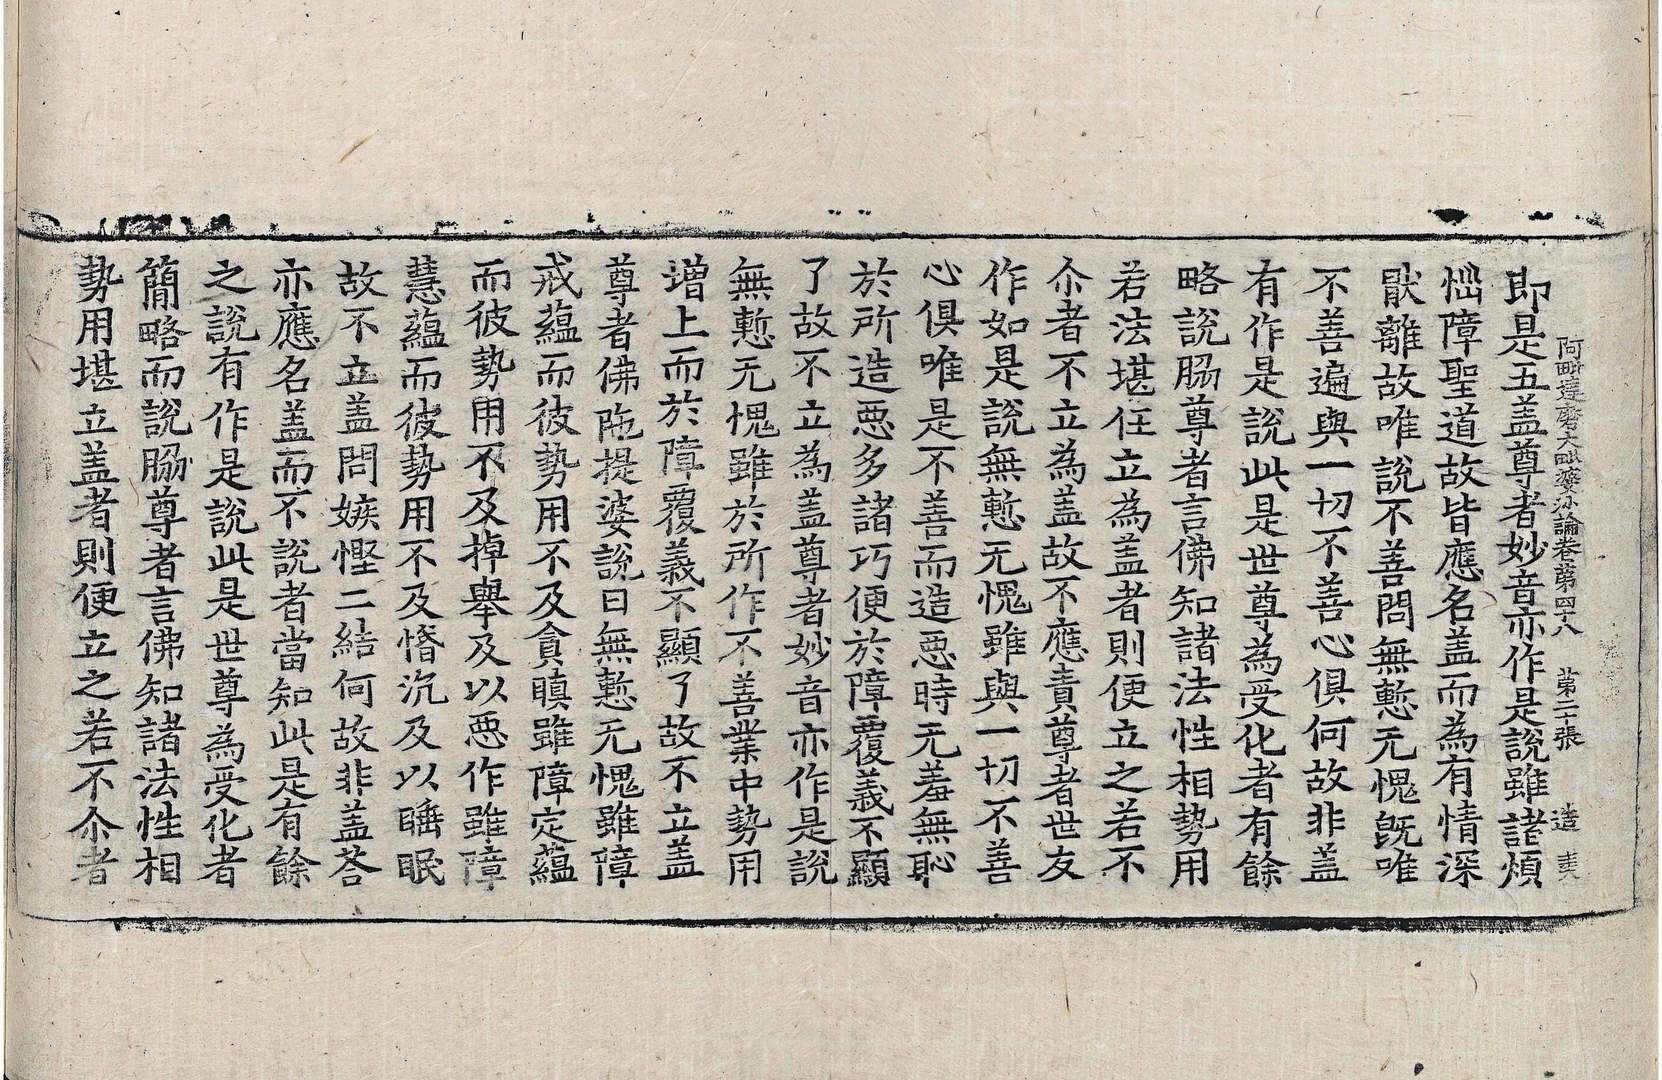 阿毗達磨大毗婆沙論卷第四十八 第二十張 造
即是五盖尊者妙音亦作是說雖諸煩
惱障聖道故皆應名盖而為有情深
猒離故唯說不善問無慙无愧旣唯
不善遍與一切不善心俱何故非盖
有作是說此是世尊為受化者有餘
略說脇尊者言佛知諸法性相勢用
若法堪任立為盖者則便立之若不
尒者不立為盖故不應責尊者世友
作如是說無慙无愧雖與一切不善
心俱唯是不善而造惡時无羞無恥
於所造惡多諸巧便於障覆義不顯
了故不立為盖尊者妙音亦作是說
無慙无愧雖於所作不善業中勢用
增上而於障覆義不顯了故不立盖
尊者佛陁提婆說曰無慙无愧雖障
戒蘊而彼勢用不及貪瞋雖障定蘊
而彼勢用不及掉舉及以惡作雖障
慧蘊而彼勢用不及惛沉及以睡眠
故不立盖問嫉慳二結何故非盖荅
亦應名盖而不說者當知此是有餘
之說有作是說此是世尊為受化者
簡略而說脇尊者言佛知諸法性相
勢用堪立盖者則便立之若不尒者